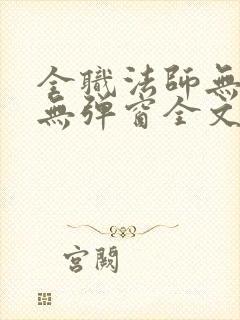 全職法師無
無彈窗全文
宮闕